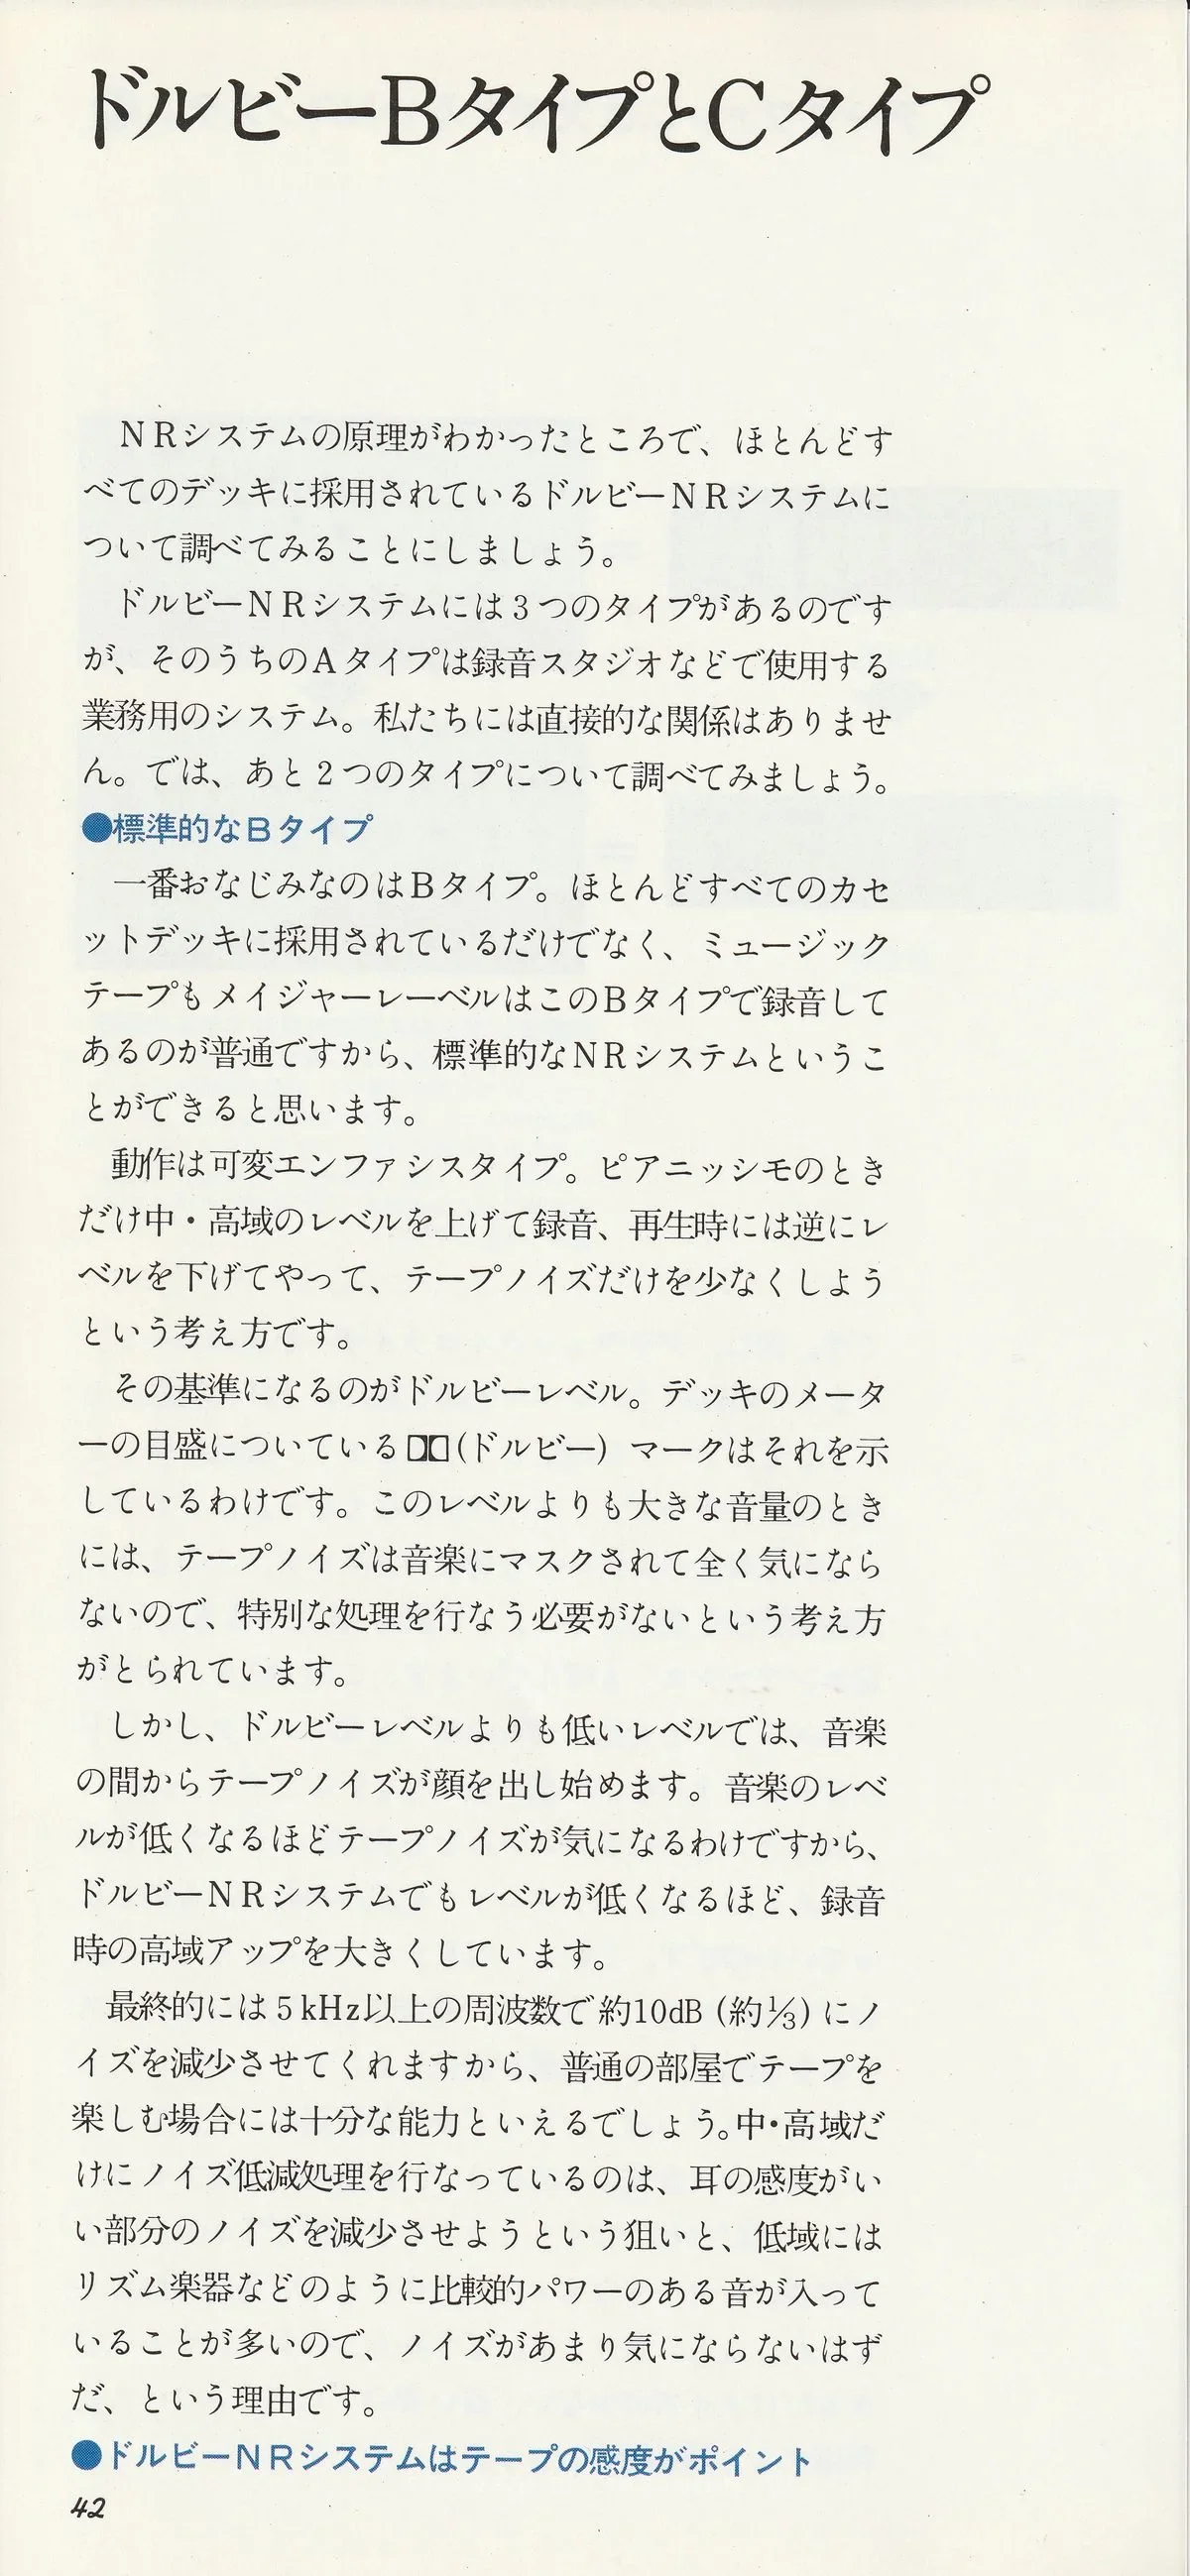 ドルビーBタイプとCタイプ
　NRシステムの原理がわかったところで、ほとんどす
べてのデッキに採用されているドルビーNRシステムに
ついて調べてみることにしましょう。
　ドルビーNRシステムには3つのタイプがあるのです
が、そのうちのAタイプは録音スタジオなどで使用する
業務用のシステム。私たちには直接的な関係はありませ
ん。では、あと2つのタイプについて調べてみましょう。
●標準的なBタイプ
　一番おなじみなのはBタイプ。ほとんどすべてのカセ
ットデッキに採用されているだけでなく、ミュージック
テープもメイジャーレーベルはこのBタイプで録音して
あるのが普通ですから、標準的なNRシステムというこ
とができると思います。
　動作は可変エンファシスタイプ。ピアニッシモのとき
だけ中・高域のレベルを上げて録音、再生時には逆にレ
ベルを下げてやって、テープノイズだけを少なくしよう
という考え方です。
　その基準になるのがドルビーレベル。デッキのメータ
ーの目盛についている(ドルビー) マークはそれを示
しているわけです。このレベルよりも大きな音量のとき
には、テープノイズは音楽にマスクされて全く気になら
ないので、特別な処理を行なう必要がないという考え方
がとられています。
　しかし、ドルビーレベルよりも低いレベルでは、音楽
の間からテープノイズが顔を出し始めます。音楽のレベ
ルが低くなるほどテープノイズが気になるわけですから、
ドルビーNRシステムでもレベルが低くなるほど、録音
時の高域アップを大きくしています。
　最終的には5kHz以上の周波数で約10dB (約⅓) にノ
イズを減少させてくれますから、普通の部屋でテープを
楽しむ場合には十分な能力といえるでしょう。中・高域だ
けにノイズ低減処理を行なっているのは、耳の感度がい
い部分のノイズを減少させようという狙いと、低域には
リズム楽器などのように比較的パワーのある音が入って
いることが多いので、ノイズがあまり気にならないはず
だ、という理由です。
●ドルビーNRシステムはテープの感度がポイント
42